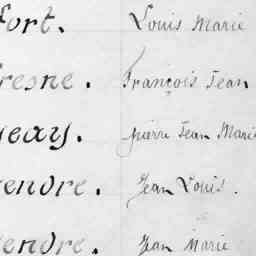 fort. Louis Marie
resne. François Jean
geay. pierre Jean Marie
endre. Jean Louis.
endre. Jean Marie